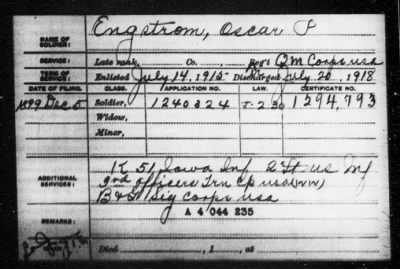 NAME OF SOLDIER: Engstrom, Oscar P
SERVICE: Late rank, Co. , Reg't Q M Corps usa
TERM OF SERVICE: Enlisted July 14, 1915 Discharged July 20, 1918
DATE OF FILING. CLASS. APPLICATION NO. LAW. CERTIFICATE NO.
1899 Dec 5 Soldier, 1240324 1294,793
Widow,
Minor,
ADDITIONAL SERVICES: K 51 Iowa Inf 2 Lt us Inf
3rd officers Trn Cp usa (WW)
Sig Corps usa
A 4 044 235
REMARKS:
Died , 1 , at